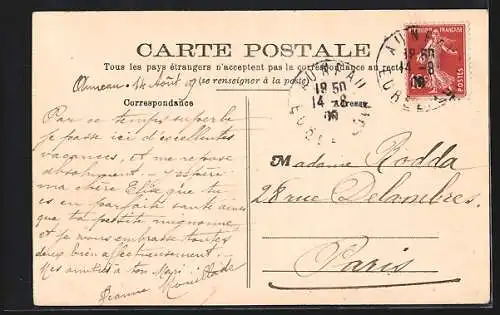 CARTE POSTALE
Tous les pays étrangers n'acceptent pas la correspondance au recto
(se renseigner à la poste)
Auneau. 14 Août 09
Correspondance
Adresse
Par ce temps superbe
je passe ici d'excellentes
vacances, et me repose
absolument. J'espère
ma chère Elise que tu
es en parfaite santé ainsi
que ta petite mignonne
et je vous embrasse toutes
deux bien affectueusement.
Mes amitiés à ton Mari
Jeanne
Madame Rodda
28 rue Delambre
Paris
AUNEAU
19 50
14 - 8
09
EURE
AUNEAU
19 50
14 - 8
EURE
FRANÇAISE
POSTES